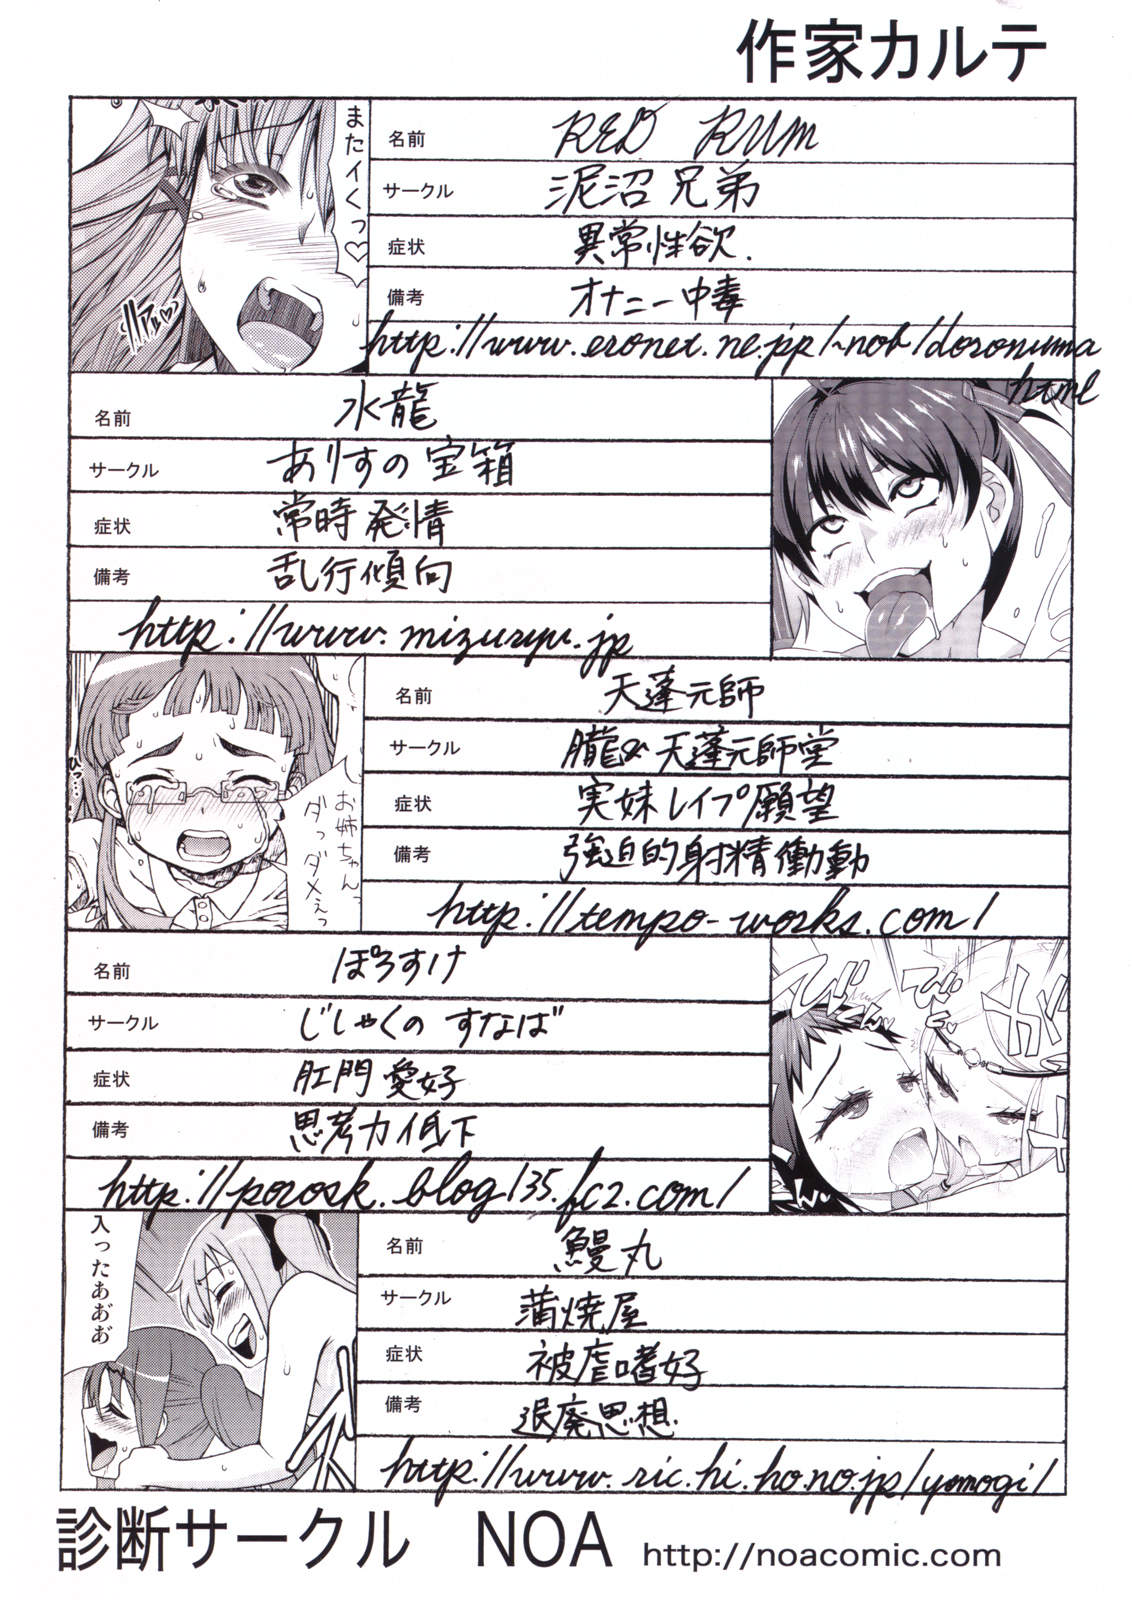 作家カルテ
またイくっ♡
名前 RED RUM
サークル 泥沼兄弟
症状 異常性欲.
備考 オナニー中毒
http://www.eronet.ne.jp/~nob/doronuma
html
名前 水龍
サークル ありすの宝箱
症状 常時発情
備考 乱行傾向
http://www.mizuryu.jp
お姉ちゃんっ
ダっダメぇっ
名前 天蓬元師
サークル 朧&天蓬元師堂
症状 実妹レイプ願望
備考 強迫的射精働動
http://tempo-works.com/
名前 ぽろすけ
サークル じしゃくのすなば
症状 肛門愛好
備考 思考力低下
http://porosk.blog135.fc2.com/
入ったあぢぢ
名前 鰻丸
サークル 蒲焼屋
症状 被虐嗜好
備考 退廃思想.
http://www.ric.hi.ho.no.jp/yomogi/
診断サークル NOA http://noacomic.com